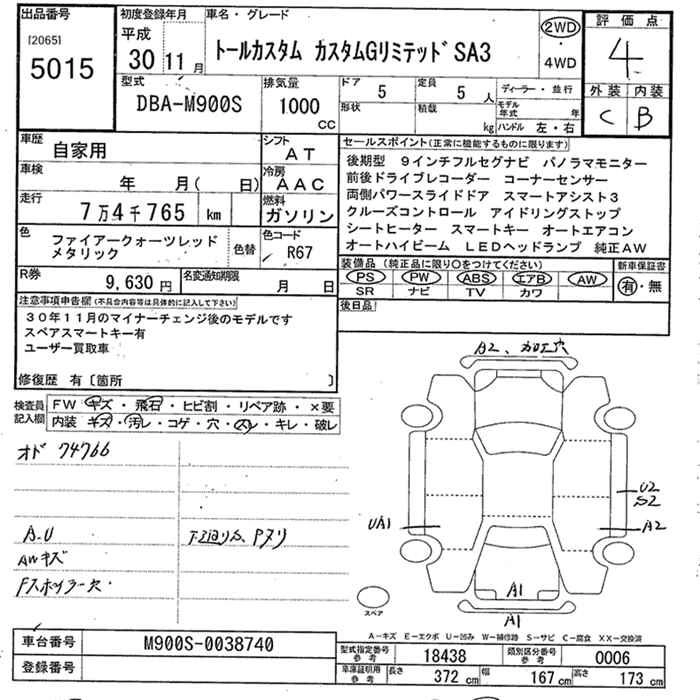 出品番号
[2065]
5015
初度登録年月
平成
30 11 月
車名・グレード
トールカスタム カスタムGリミテッド SA3
2WD
・
4WD
評価点
4
外装 内装
C B
型式
DBA-M900S
排気量
1000
CC
ドア
5
定員
5 人
形状
積載
kg
ディーラー・並行
モデル
年式
年
ハンドル 左・右
車歴
自家用
シフト
AT
車検
年 月( 日)
冷房
AAC
走行
7万4千765 km
燃料
ガソリン
色
ファイアークォーツレッド
メタリック
色替
色コード
R67
R券
9,630 円
名変通知期限
月 日
セールスポイント(正常に機能するものに限ります)
後期型 9インチフルセグナビ パノラマモニター
前後ドライブレコーダー コーナーセンサー
両側パワースライドドア スマートアシスト3
クルーズコントロール アイドリングストップ
シートヒーター スマートキー オートエアコン
オートハイビーム LEDヘッドランプ 純正AW
装備品(純正品に限り〇をつけてください)
PS PW ABS エアB AW
SR ナビ TV カワ
新車保証書
有・無
後日品
注意事項申告欄(不具合内容等は具体的に記入して下さい)
30年11月のマイナーチェンジ後のモデルです
スペアスマートキー有
ユーザー買取車
修復歴 有〔箇所 〕
検査員
記入欄
FW キズ・飛石・ヒビ割・リペア跡・×要
内装 キズ・汚レ・コゲ・穴・スレ・キレ・破レ
オド 74766
A.U
AWキズ
Fスポイラー欠
下廻りS、Pヌリ
A2、加工穴
U2
S2
UA1
A2
A1
A1
スペア
A-キズ E-エクボ U-凹み W-補修跡 S-サビ C-腐食 XX-交換済
車台番号
M900S-0038740
登録番号
型式指定番号
参考
18438
類別区分番号
参考
0006
車庫証明用
参考
長さ
372 cm
幅
167 cm
高さ
173 cm